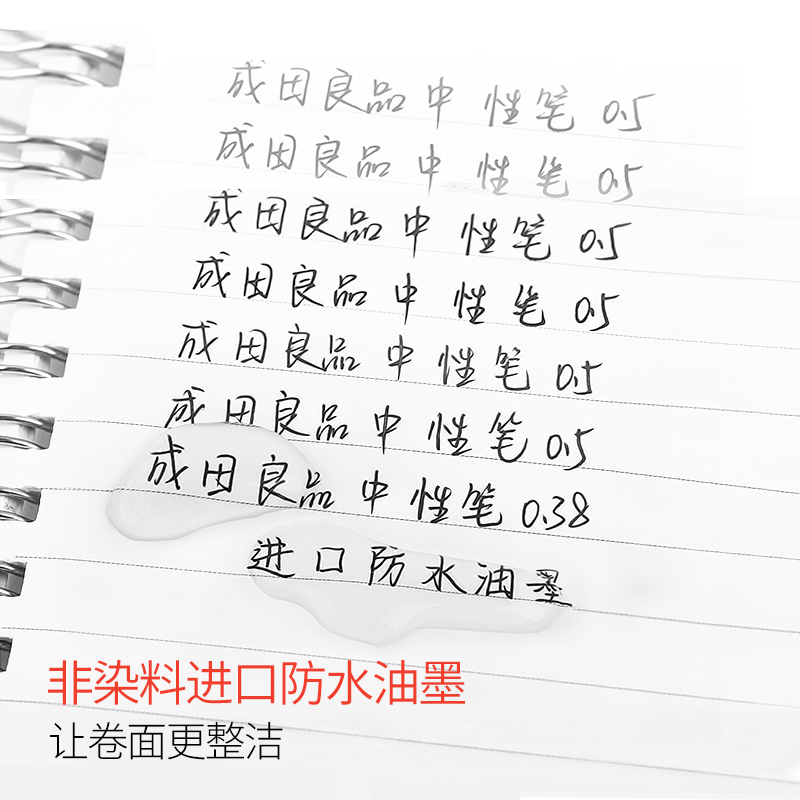 成田良品中性笔 0.5
成田良品中性笔 0.5
成田良品中性笔 0.5
成田良品中性笔 0.5
成田良品中性笔 0.5
成田良品中性笔 0.5
成田良品中性笔 0.38
进口防水油墨
非染料进口防水油墨
让卷面更整洁